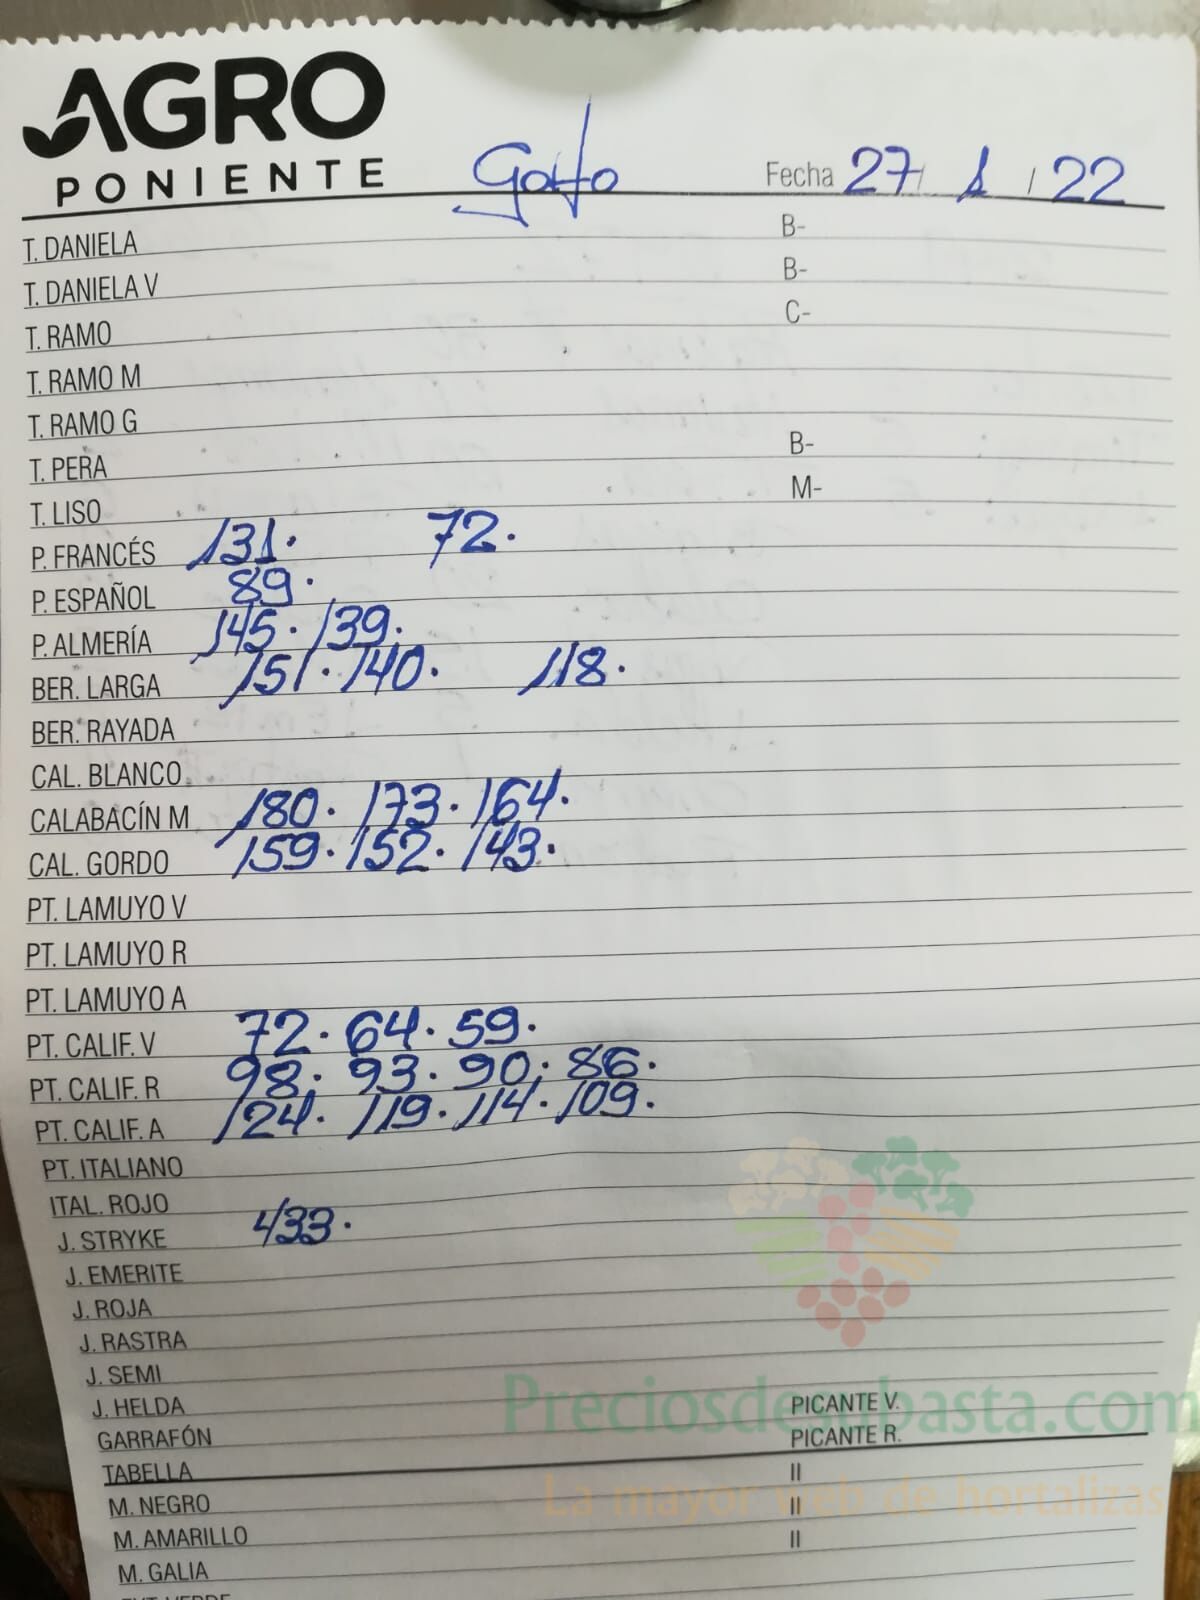 AGRO
PONIENTE
Golfo Fecha 27 / 1 / 22
T. DANIELA B-
T. DANIELA V B-
T. RAMO C-
T. RAMO M
T. RAMO G
T. PERA B-
T. LISO M-
P. FRANCÉS 131. 72.
P. ESPAÑOL 89.
P. ALMERÍA 145. 139.
BER. LARGA 151. 140. 118.
BER. RAYADA
CAL. BLANCO
CALABACÍN M 180. 173. 164.
CAL. GORDO 159. 152. 143.
PT. LAMUYO V
PT. LAMUYO R
PT. LAMUYO A
PT. CALIF. V 72. 64. 59.
PT. CALIF. R 98. 93. 90. 86.
PT. CALIF. A 124. 119. 114. 109.
PT. ITALIANO
ITAL. ROJO
J. STRYKE 433.
J. EMERITE
J. ROJA
J. RASTRA
J. SEMI
J. HELDA PICANTE V.
Preciosdesubasta.com
GARRAFÓN PICANTE R.
TABELLA II
La mayor web de hortalizas
M. NEGRO II
M. AMARILLO II
M. GALIA